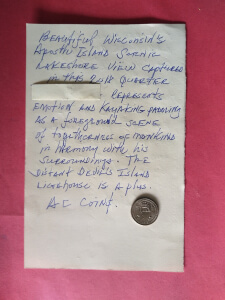 BEAUTIFUL WISCONSIN'S
APOSTLE ISLAND SCENIC
LAKESHORE VIEW CAPTURED
IN THIS 2018 QUARTER
REPRESENTS
EMOTION AND KAYAKING PADDLING
AS A FOREGROUND SCENE
OF TOGETHERNESS OF MANKIND
IN HARMONY WITH HIS
SURROUNDINGS. THE
DISTANT DEVILS ISLAND
LIGHTHOUSE IS A PLUS.
COINS.